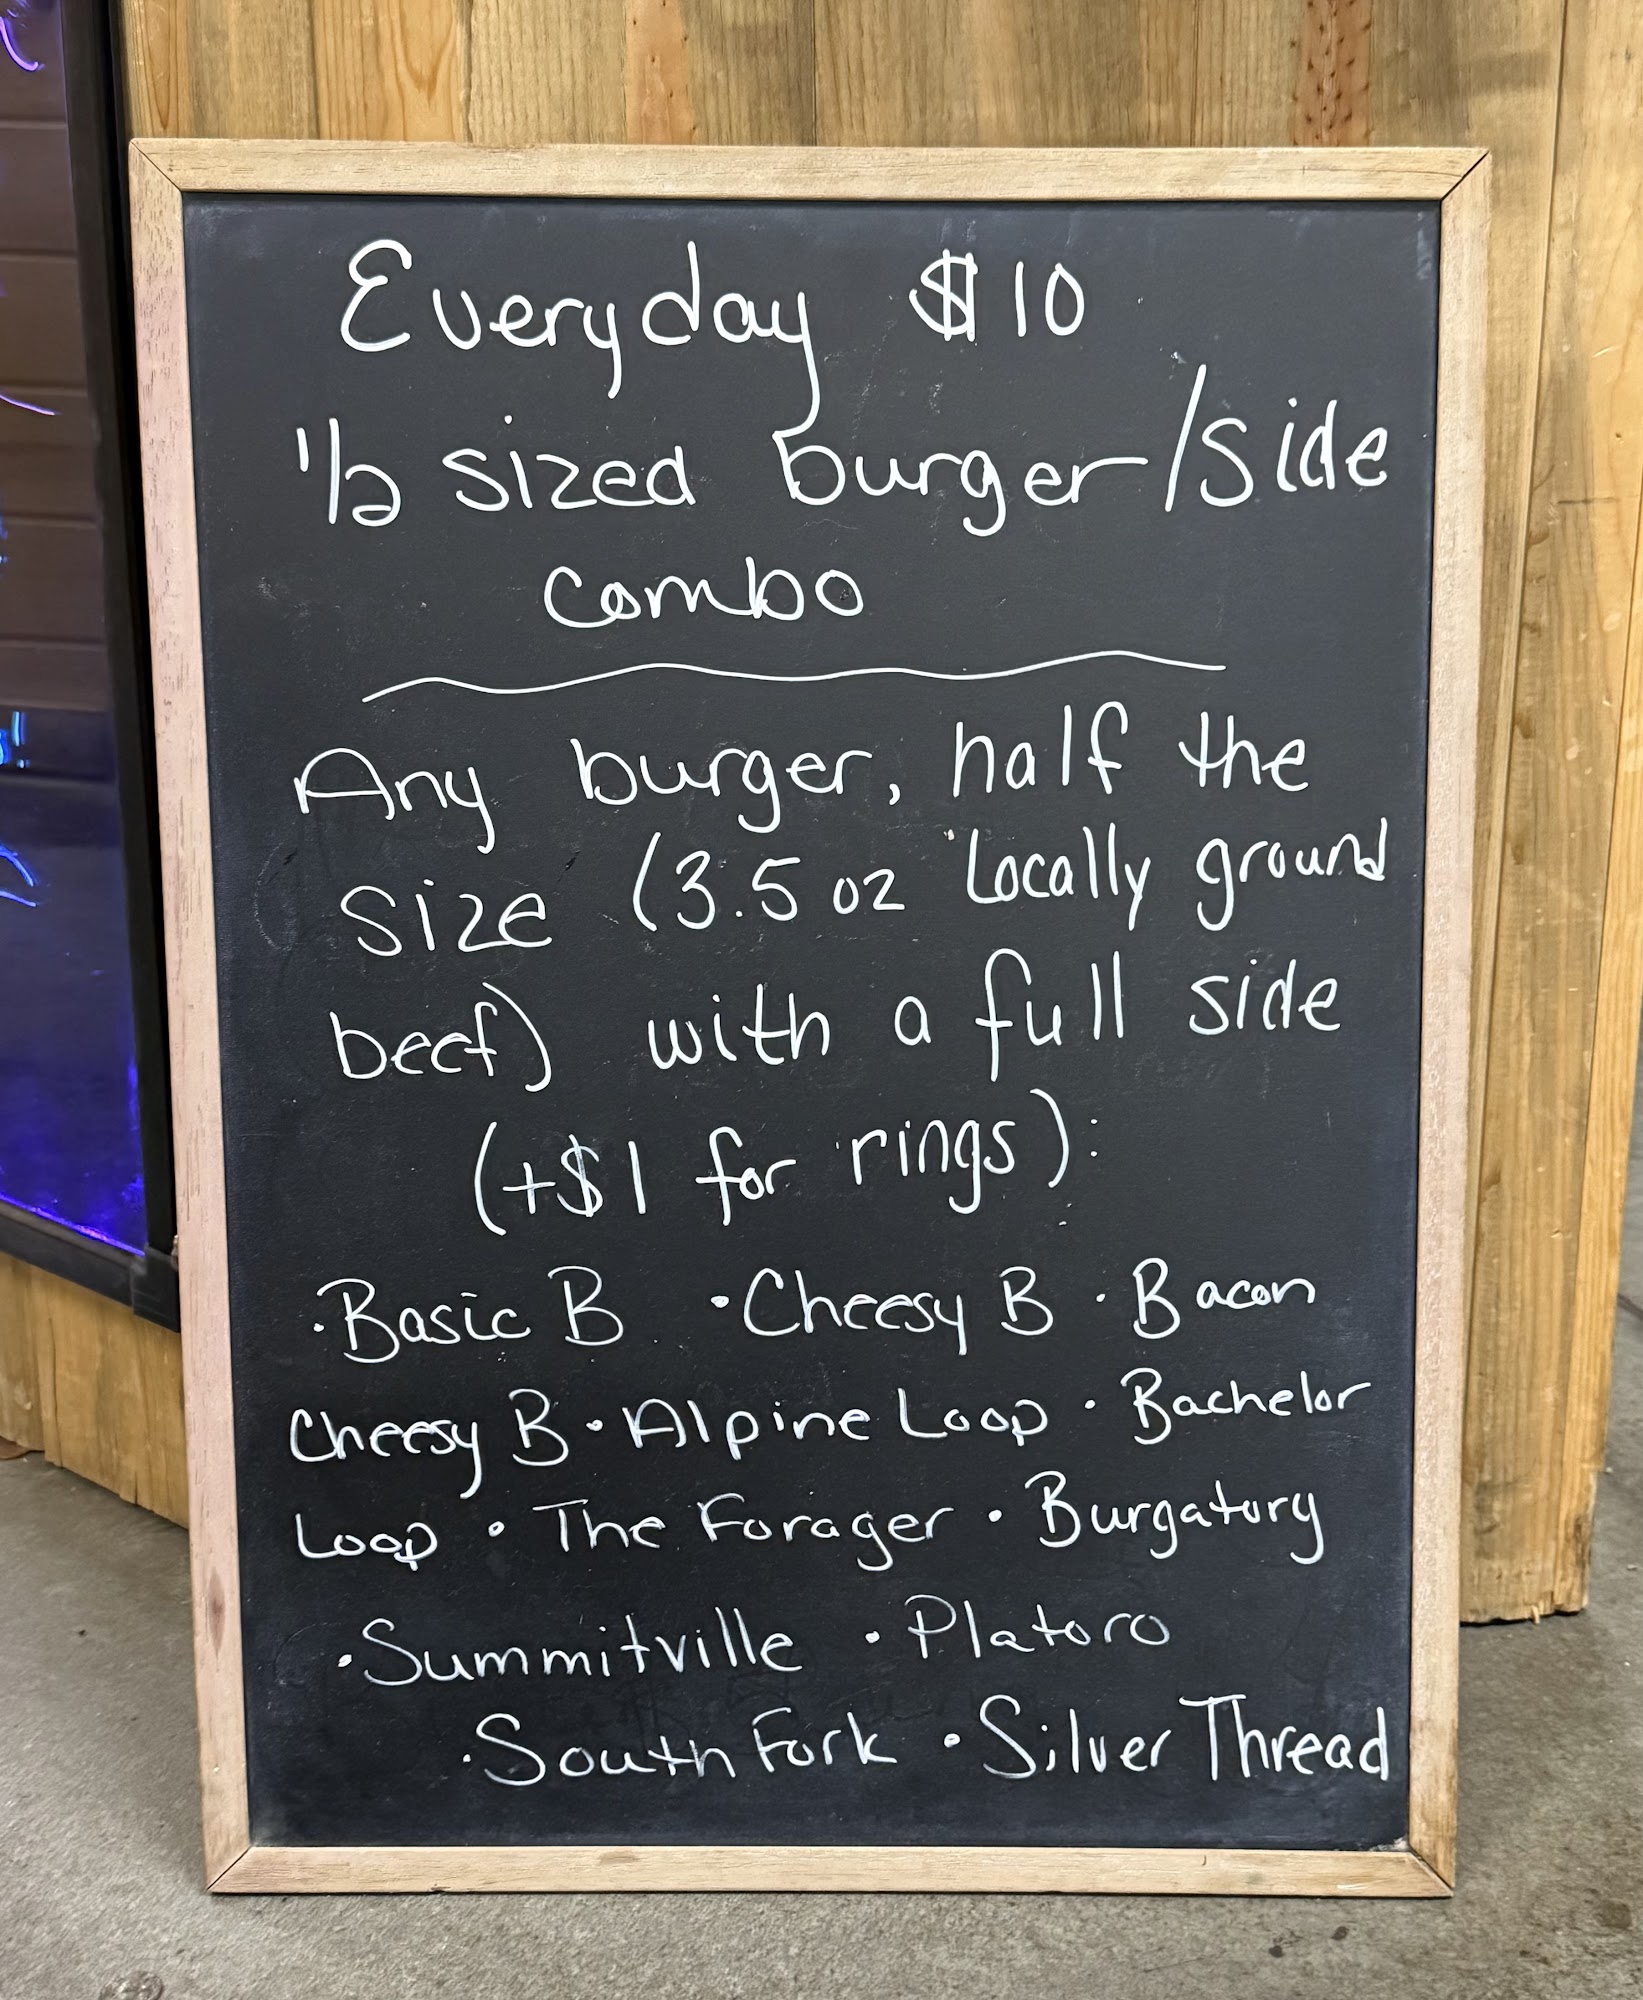 Everyday $10
1/2 sized burger/side
combo
Any burger, half the
size (3.5 oz Locally ground
beef) with a full side
(+$1 for rings):
·Basic B ·Cheesy B ·Bacon
Cheesy B·Alpine Loop ·Bachelor
Loop ·The Forager ·Burgatory
·Summitville ·Platoro
·South Fork ·Silver Thread